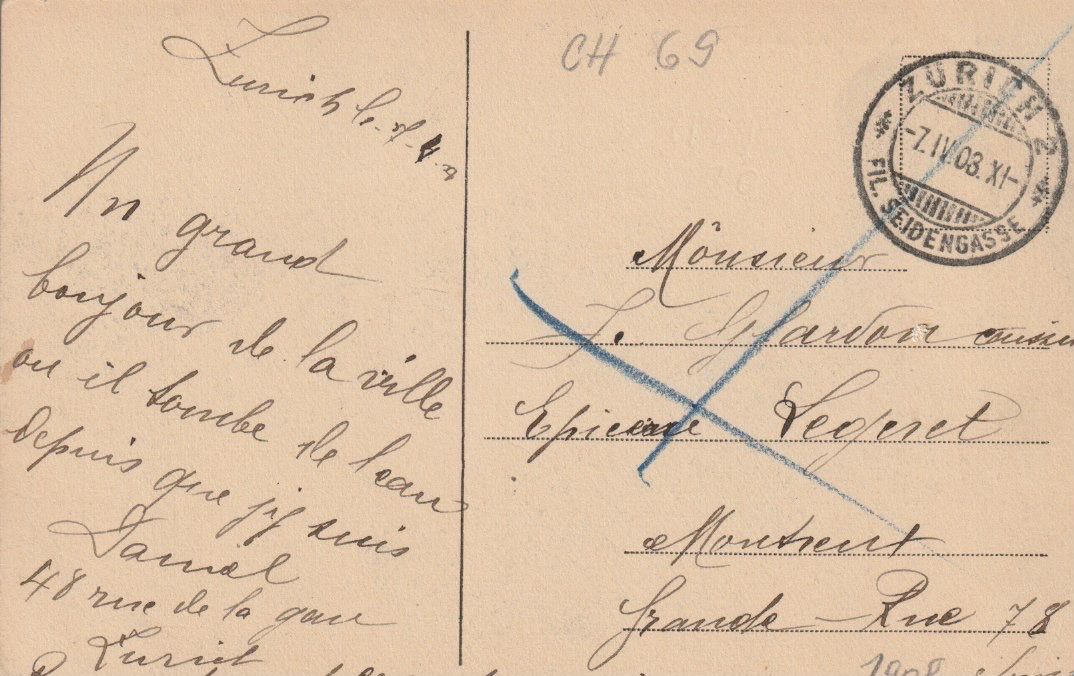 Zurich le 7-4-8
Un grand
bonjour de la ville
ou il tombe de l'eau
depuis que j'y suis
Daniel
48 rue de la gare
Zurich
CH 69
ZÜRICH 2
-7.IV.08.XI-
FIL. SEIDENGASSE
Monsieur
Epicerie Legeret
Montreux
Grande Rue 78
1908